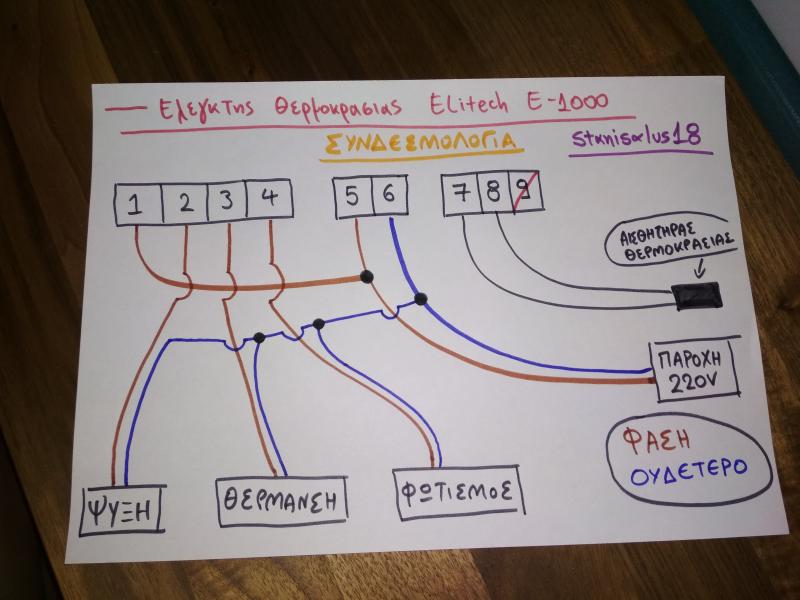 Ελεγκτης Θερμοκρασιας Elitech E-1000
ΣΥΝΔΕΣΜΟΛΟΓΙΑ
Stanisαlus18
1 2 3 4
5 6
7 8 9
ΑΙΣΘΗΤΗΡΑΣ
ΘΕΡΜΟΚΡΑΣΙΑΣ
ΠΑΡΟΧΗ
220V
ΦΑΣΗ
ΟΥΔΕΤΕΡΟ
ΨΥΞΗ
ΘΕΡΜΑΝΣΗ
ΦΩΤΙΣΜΟΣ